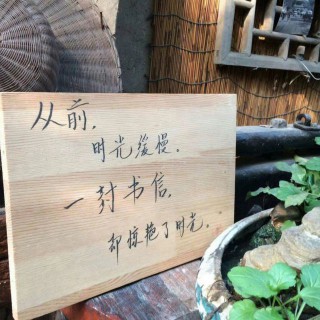 从前，
时光缓慢。
一封书信，
却惊艳了时光。